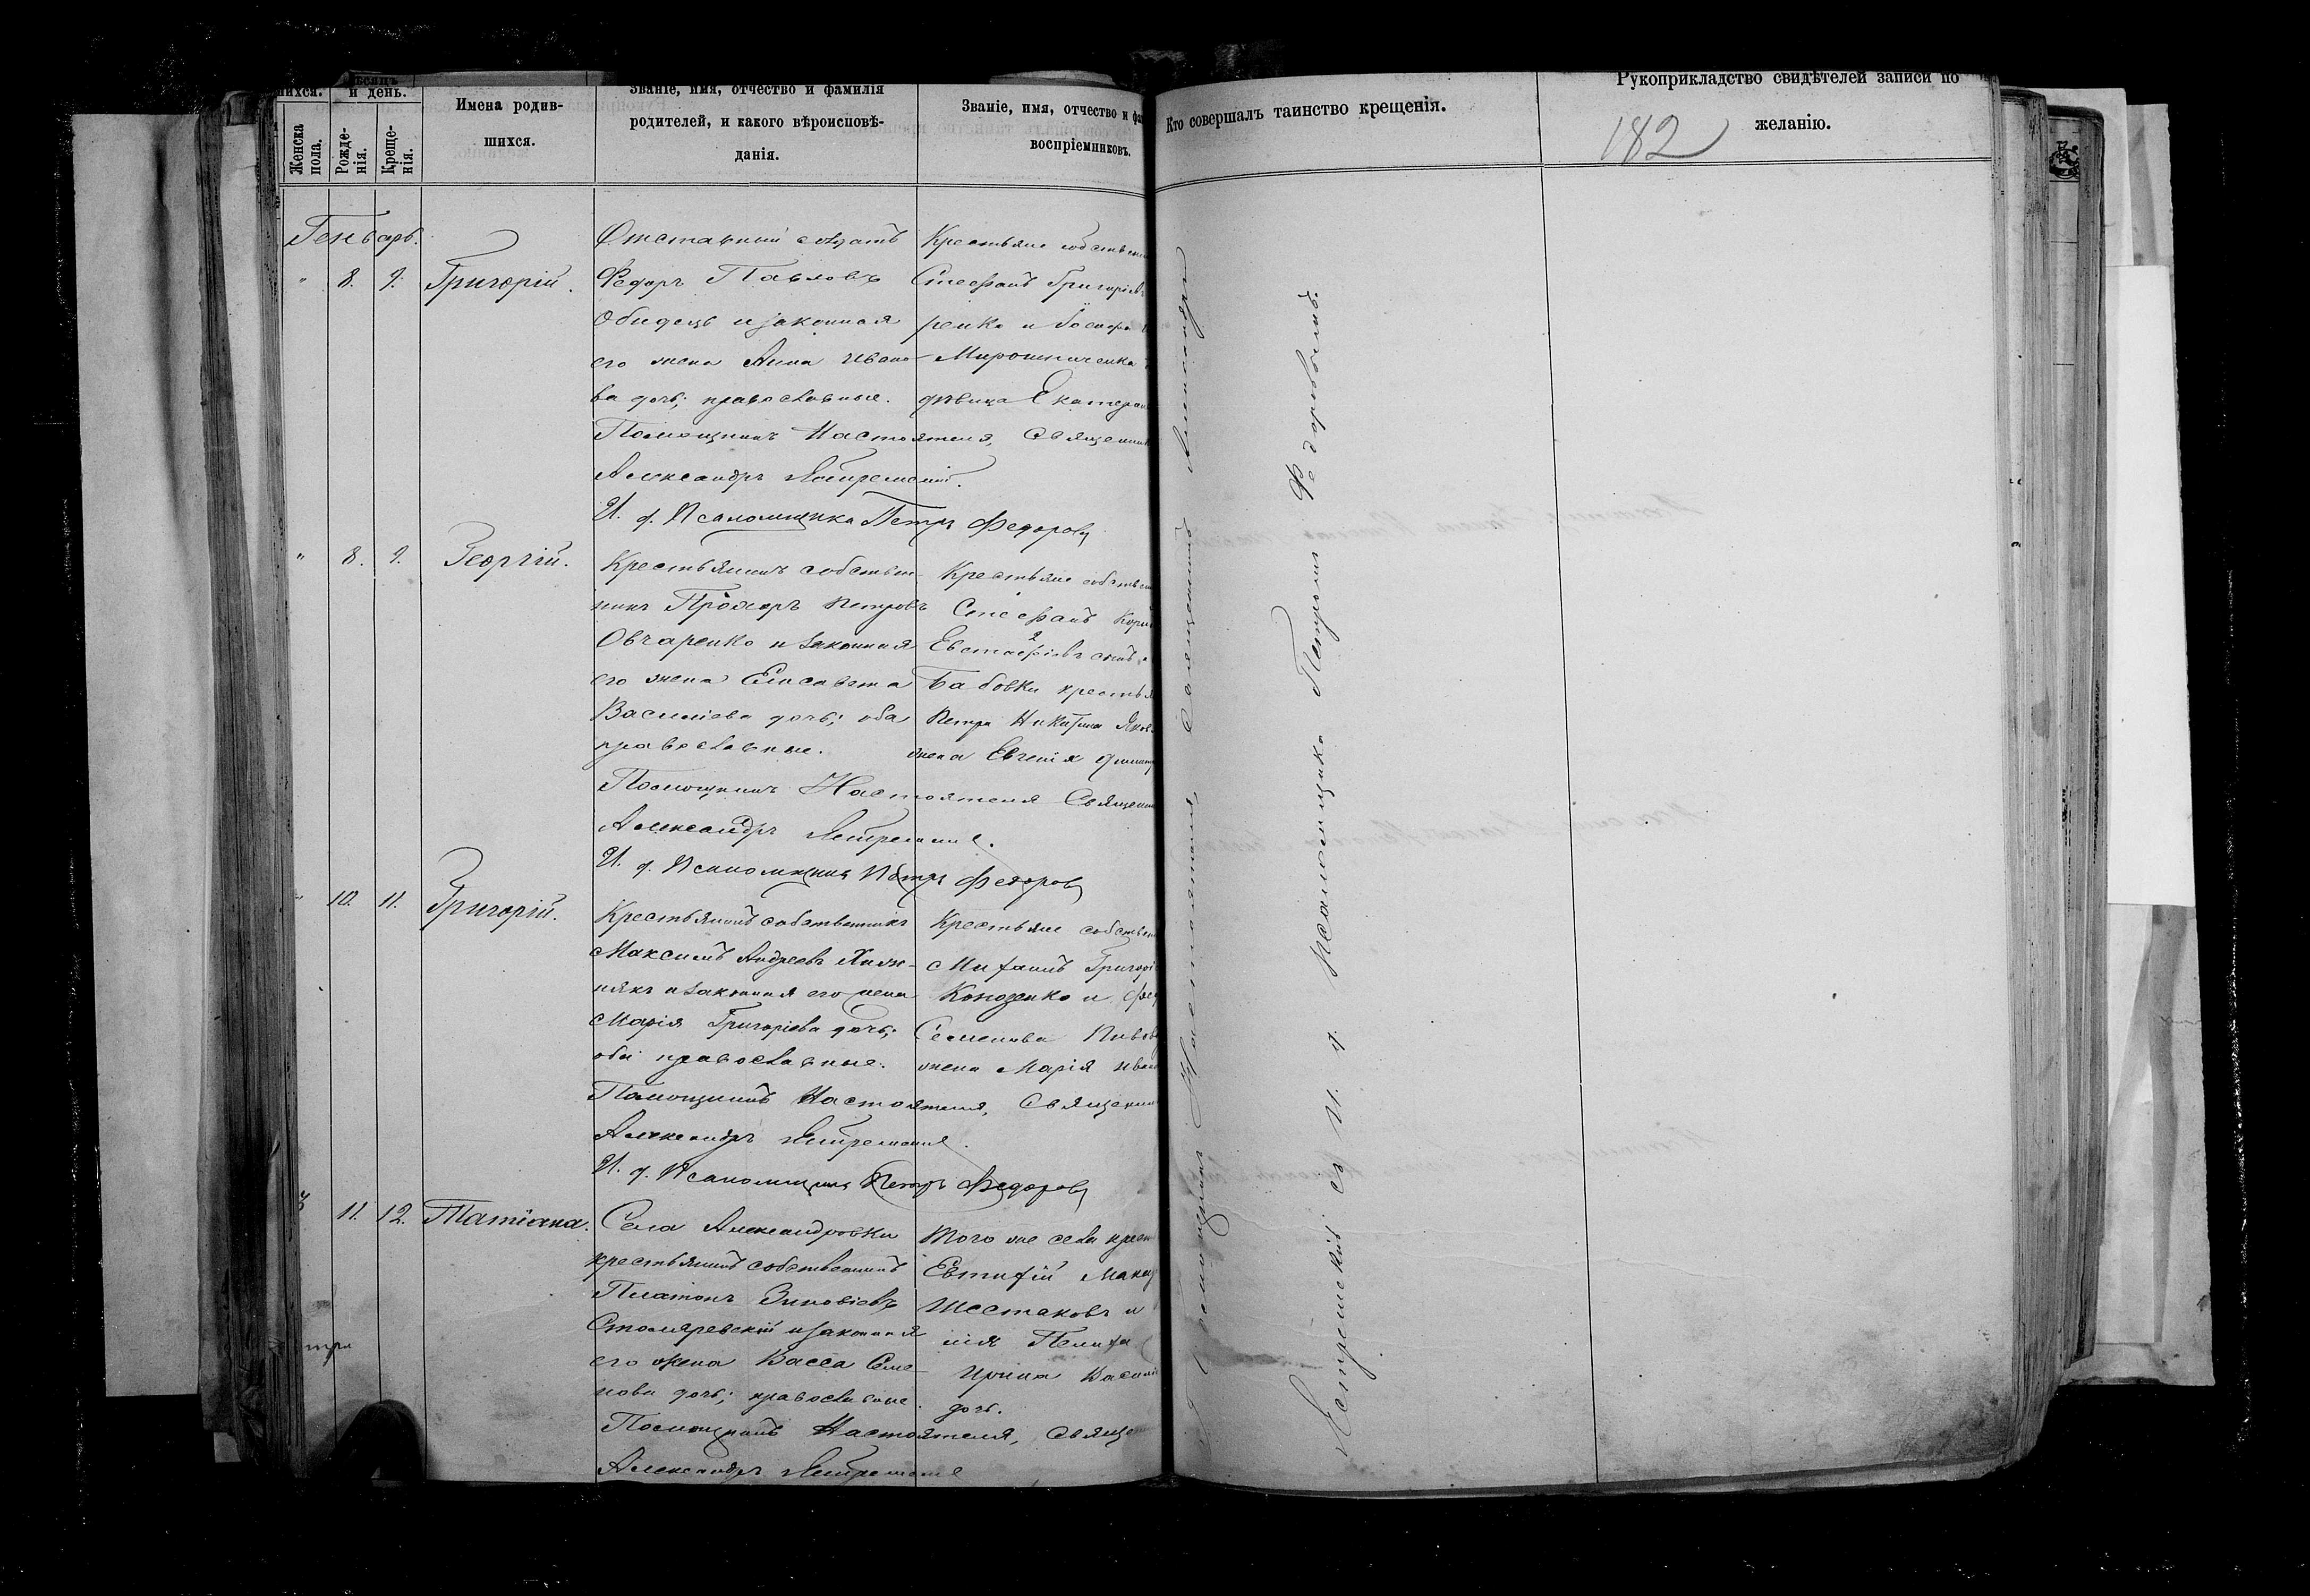 шихся.
Мѣсяцъ
и день.
Женска
пола.
Рожде-
нія.
Креще-
нія.
Имена родив-
шихся.
Званіе, имя, отчество и фамилія
родителей, и какого вѣроисповѣ-
данія.
Званіе, имя, отчество и фа
воспріемниковъ.
Кто совершалъ таинство крещенія.
Рукоприкладство свидѣтелей записи по
желанію.
182
Генварь.
" 8. 9. Григорій.
Отставный солдатъ
Федоръ Павловъ
Обидецъ и законная
его жена Анна Ивано-
ва дочь; православные.
Крестьяне собствен
Стефанъ Григоріевъ
ренко и
Мирошниченка
дѣвица Екатерин
Помощникъ Настоятеля, Священник
Александръ Ястремскій.
И. д. Псаломщика Петръ Федоровъ
" 8. 9. Георгій.
Крестьянинъ собствен-
никъ Прохоръ Петровъ
Овчаренко и законная
его жена Елисавета
Василіева дочь; оба
православные.
Крестьяне собствен
Стефанъ
Евстафіевъ сынъ
Бабовки крестья
Петра Никитина Яков
жена Евгенія
Помощникъ Настоятеля Священни
Александръ Ястремскій.
И. д. Псаломщика Петръ Федоровъ
" 10. 11. Григорій.
Крестьянинъ собственникъ
Максимъ Андреевъ
някъ и законная его жена
Марія Григоріева дочь;
оба православные.
Крестьяне собствен
Митанъ Григорі
Коноденко и
Семенова
жена Марія Иван
Помощникъ Настоятеля, Священни
Александръ Ястремскій.
И. д. Псаломщика Петръ Федоровъ
11. 12. Татіана.
Села Александровки
крестьянинъ собственникъ
Платонъ Зиновіевъ
Столяревскій и законная
его жена Васса Семе-
нова дочь; православные.
Того же села крест
Евтихій Макс
Шестаковъ и
Ирина Василі
дочь.
Помощникъ Настоятеля, Священ
Александръ Ястремскій
Помощникъ Настоятеля, Священникъ Александръ
Ястремскій съ И. д. Псаломщика Петромъ Федоровымъ.